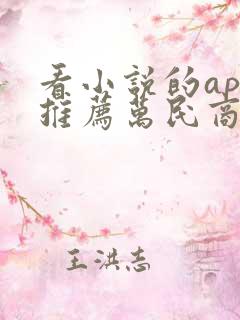 看小説的ap
推薦萬民商
王洪志